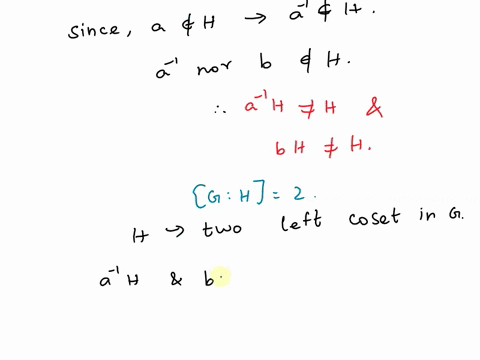 since, a ∉ H → a⁻¹ ∉ H.
a⁻¹ nor b ∉ H.
∴ a⁻¹H ≠ H &
bH ≠ H.
[G:H] = 2.
H → two left coset in G.
a⁻¹H & b